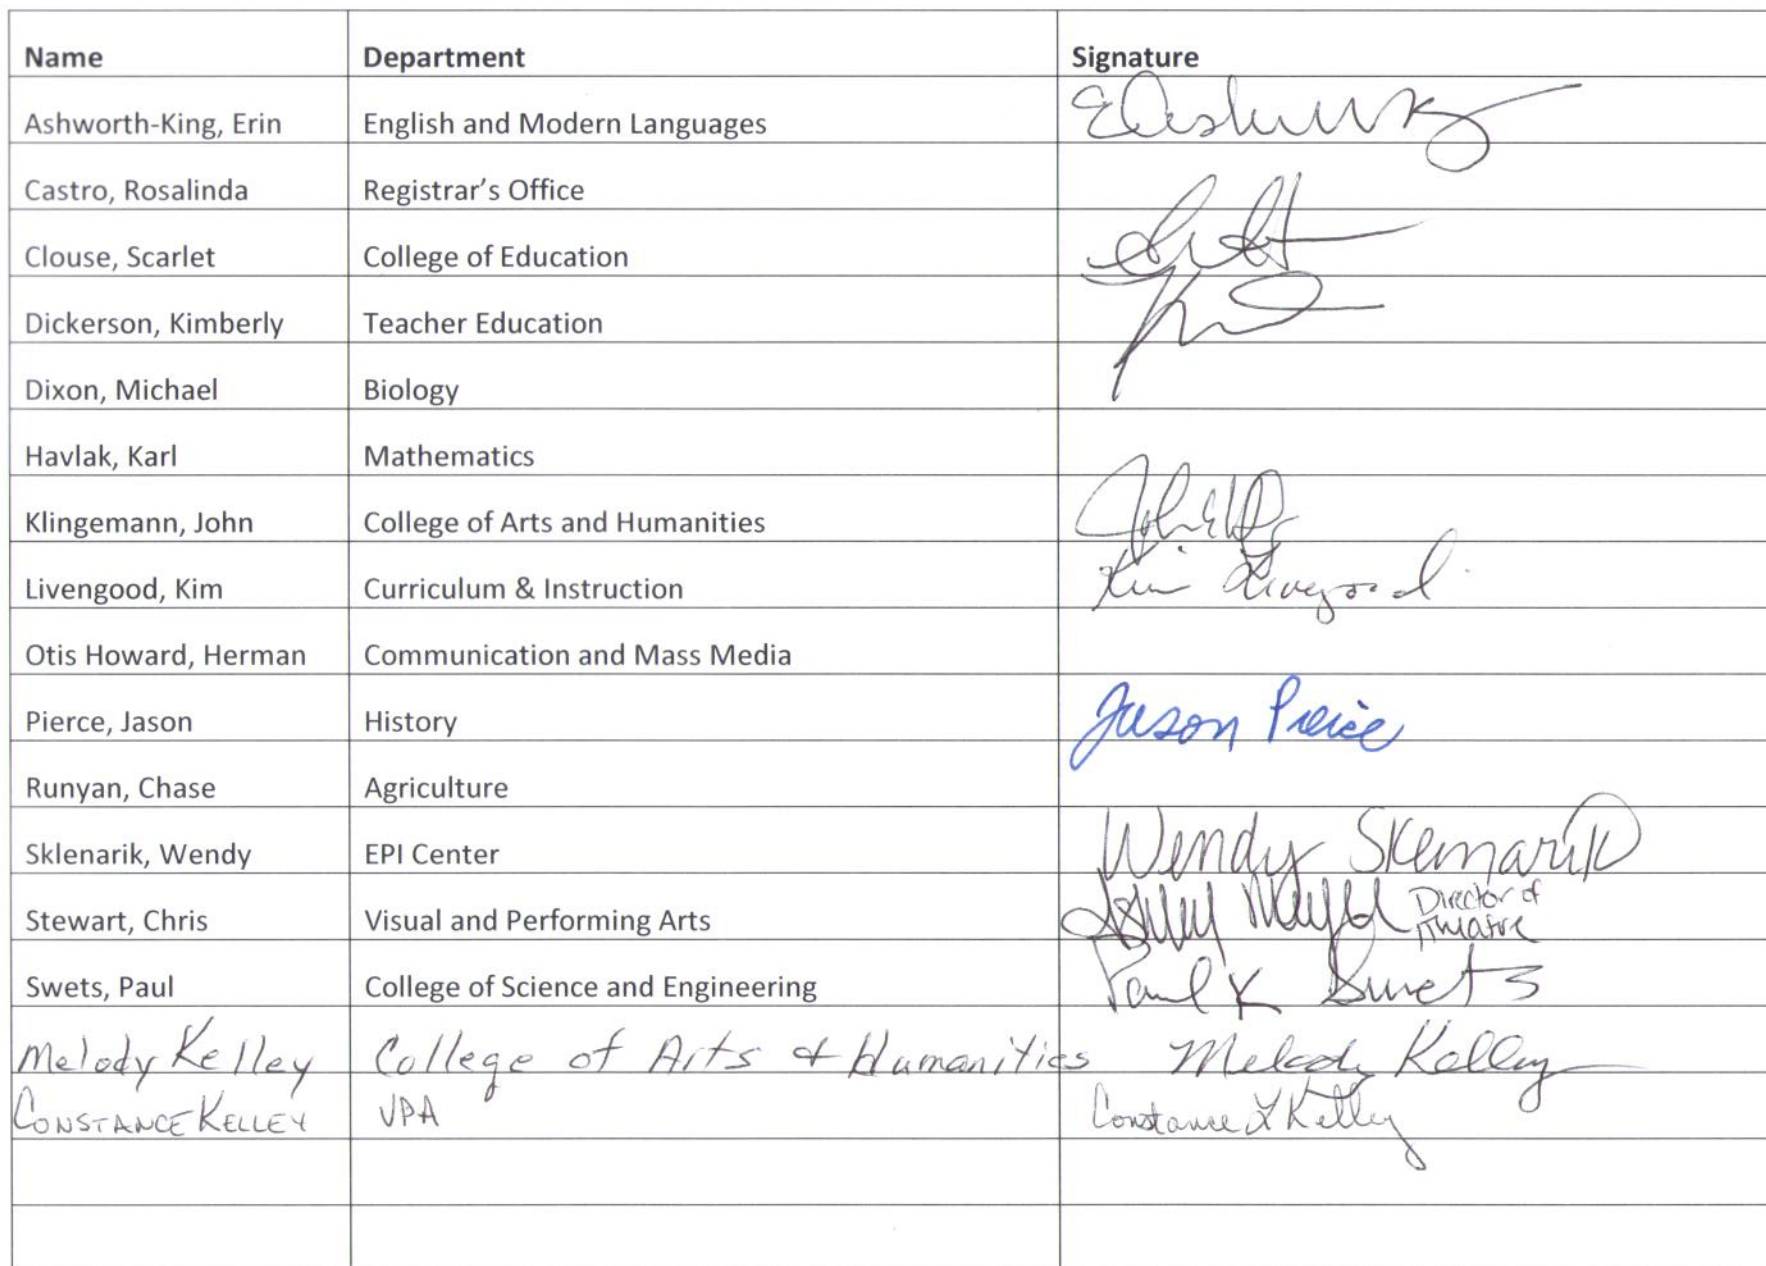 Name Department Signature
Ashworth-King, Erin English and Modern Languages
Castro, Rosalinda Registrar's Office
Clouse, Scarlet College of Education
Dickerson, Kimberly Teacher Education
Dixon, Michael Biology
Havlak, Karl Mathematics
Klingemann, John College of Arts and Humanities
Livengood, Kim Curriculum & Instruction Kim Livengood
Otis Howard, Herman Communication and Mass Media
Pierce, Jason History Jason Pierce
Runyan, Chase Agriculture
Sklenarik, Wendy EPI Center Wendy Sklenarik
Stewart, Chris Visual and Performing Arts Director of Theatre
Swets, Paul College of Science and Engineering Paul K Swets
Melody Kelley College of Arts & Humanities Melody Kelley
CONSTANCE KELLEY VPA Constance L Kelley